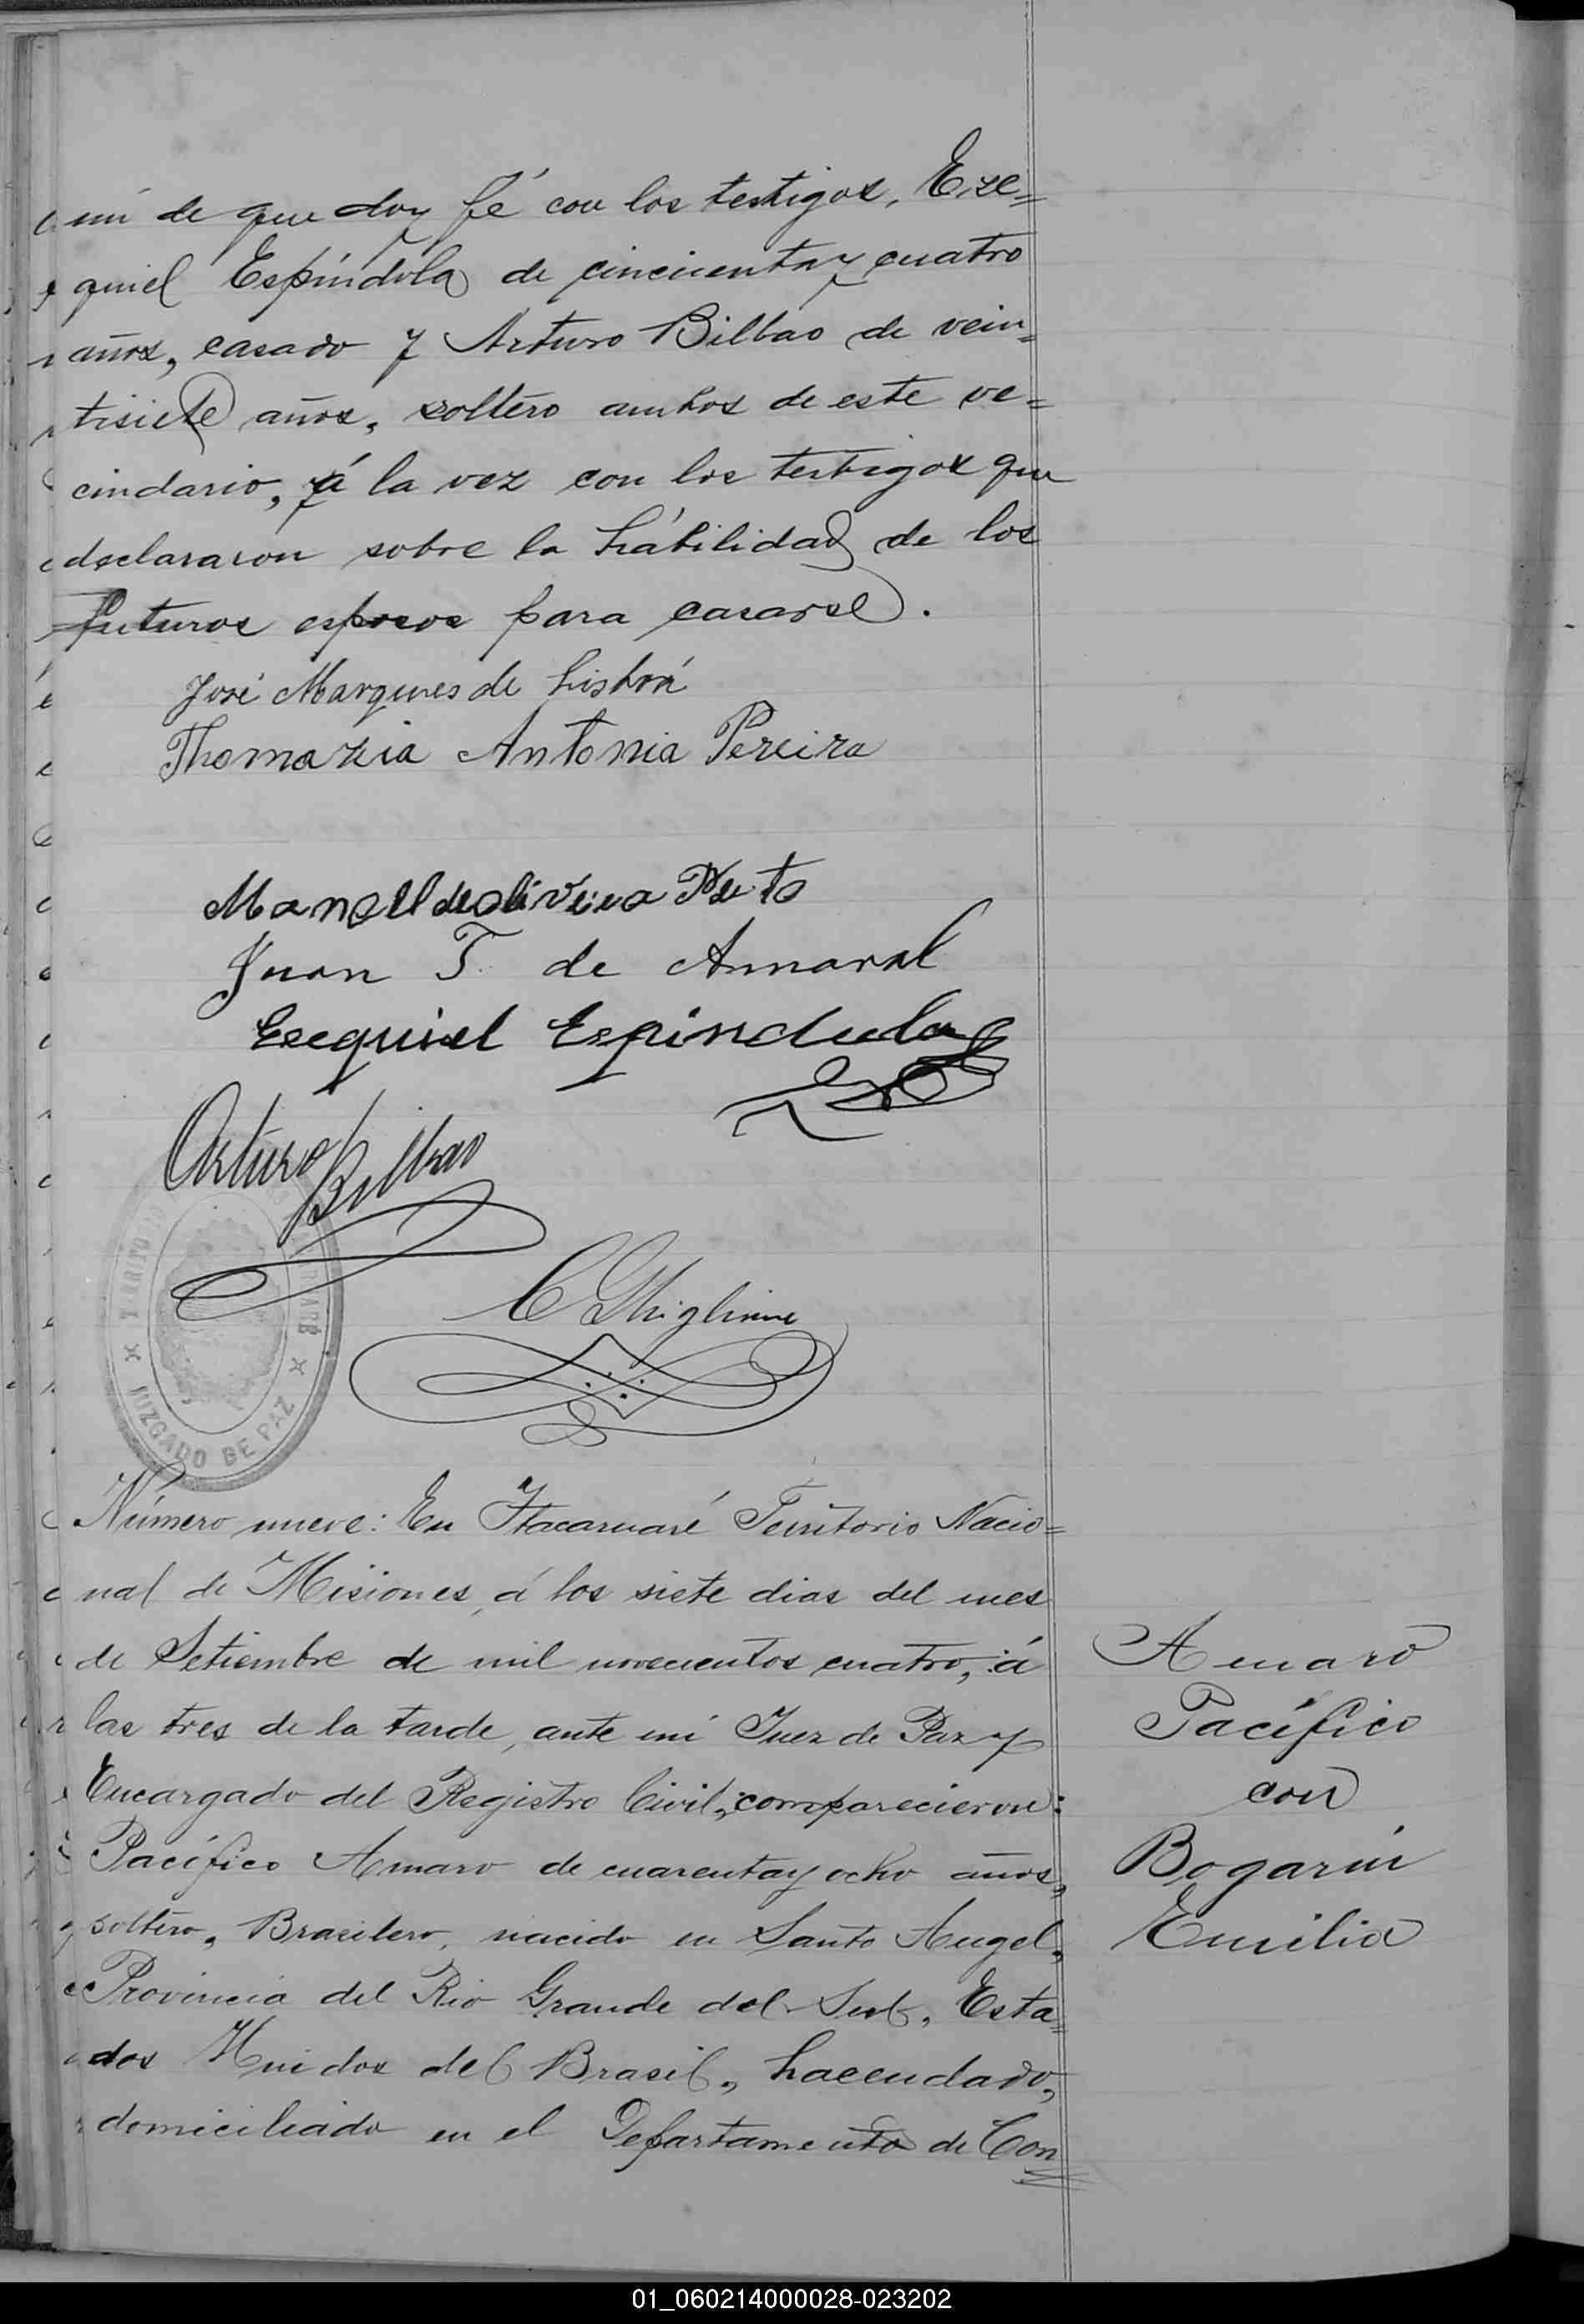 mi de que doy fé con los testigos, Eze=
quiel Espíndola de cincuenta y cuatro
años, casado y Arturo Bilbao de vein=
tisiete años, soltero ambos de este ve=
cindario, y á la vez con los testigos que
declararon sobre la habilidad de los
futuros esposos para casarse.
José Marques de Lisbôa
Thomazia Antonia Pereira
Manoel de oliveira
Juan T. de Amaral
Esequiel Espindula
Arturo Bilbao
C Ghiglione
JUZGADO DE PAZ
Número nueve: En Itacaruaré Territorio Nacio=
nal de Misiones, á los siete dias del mes
de Setiembre de mil novecientos cuatro, á
las tres de la tarde, ante mi Juez de Paz y
Encargado del Registro Civil, comparecieron:
Pacífico Amaro de cuarenta y ocho años,
soltero, Brasilero, nacido en Santo Angel,
Provincia del Rio Grande del Sud, Esta=
dos Unidos del Brasil, hacendado,
domiciliado en el Departamento de Con=
Amaro
Pacífico
con
Bogarin
Emilia
01_060214000028-023202